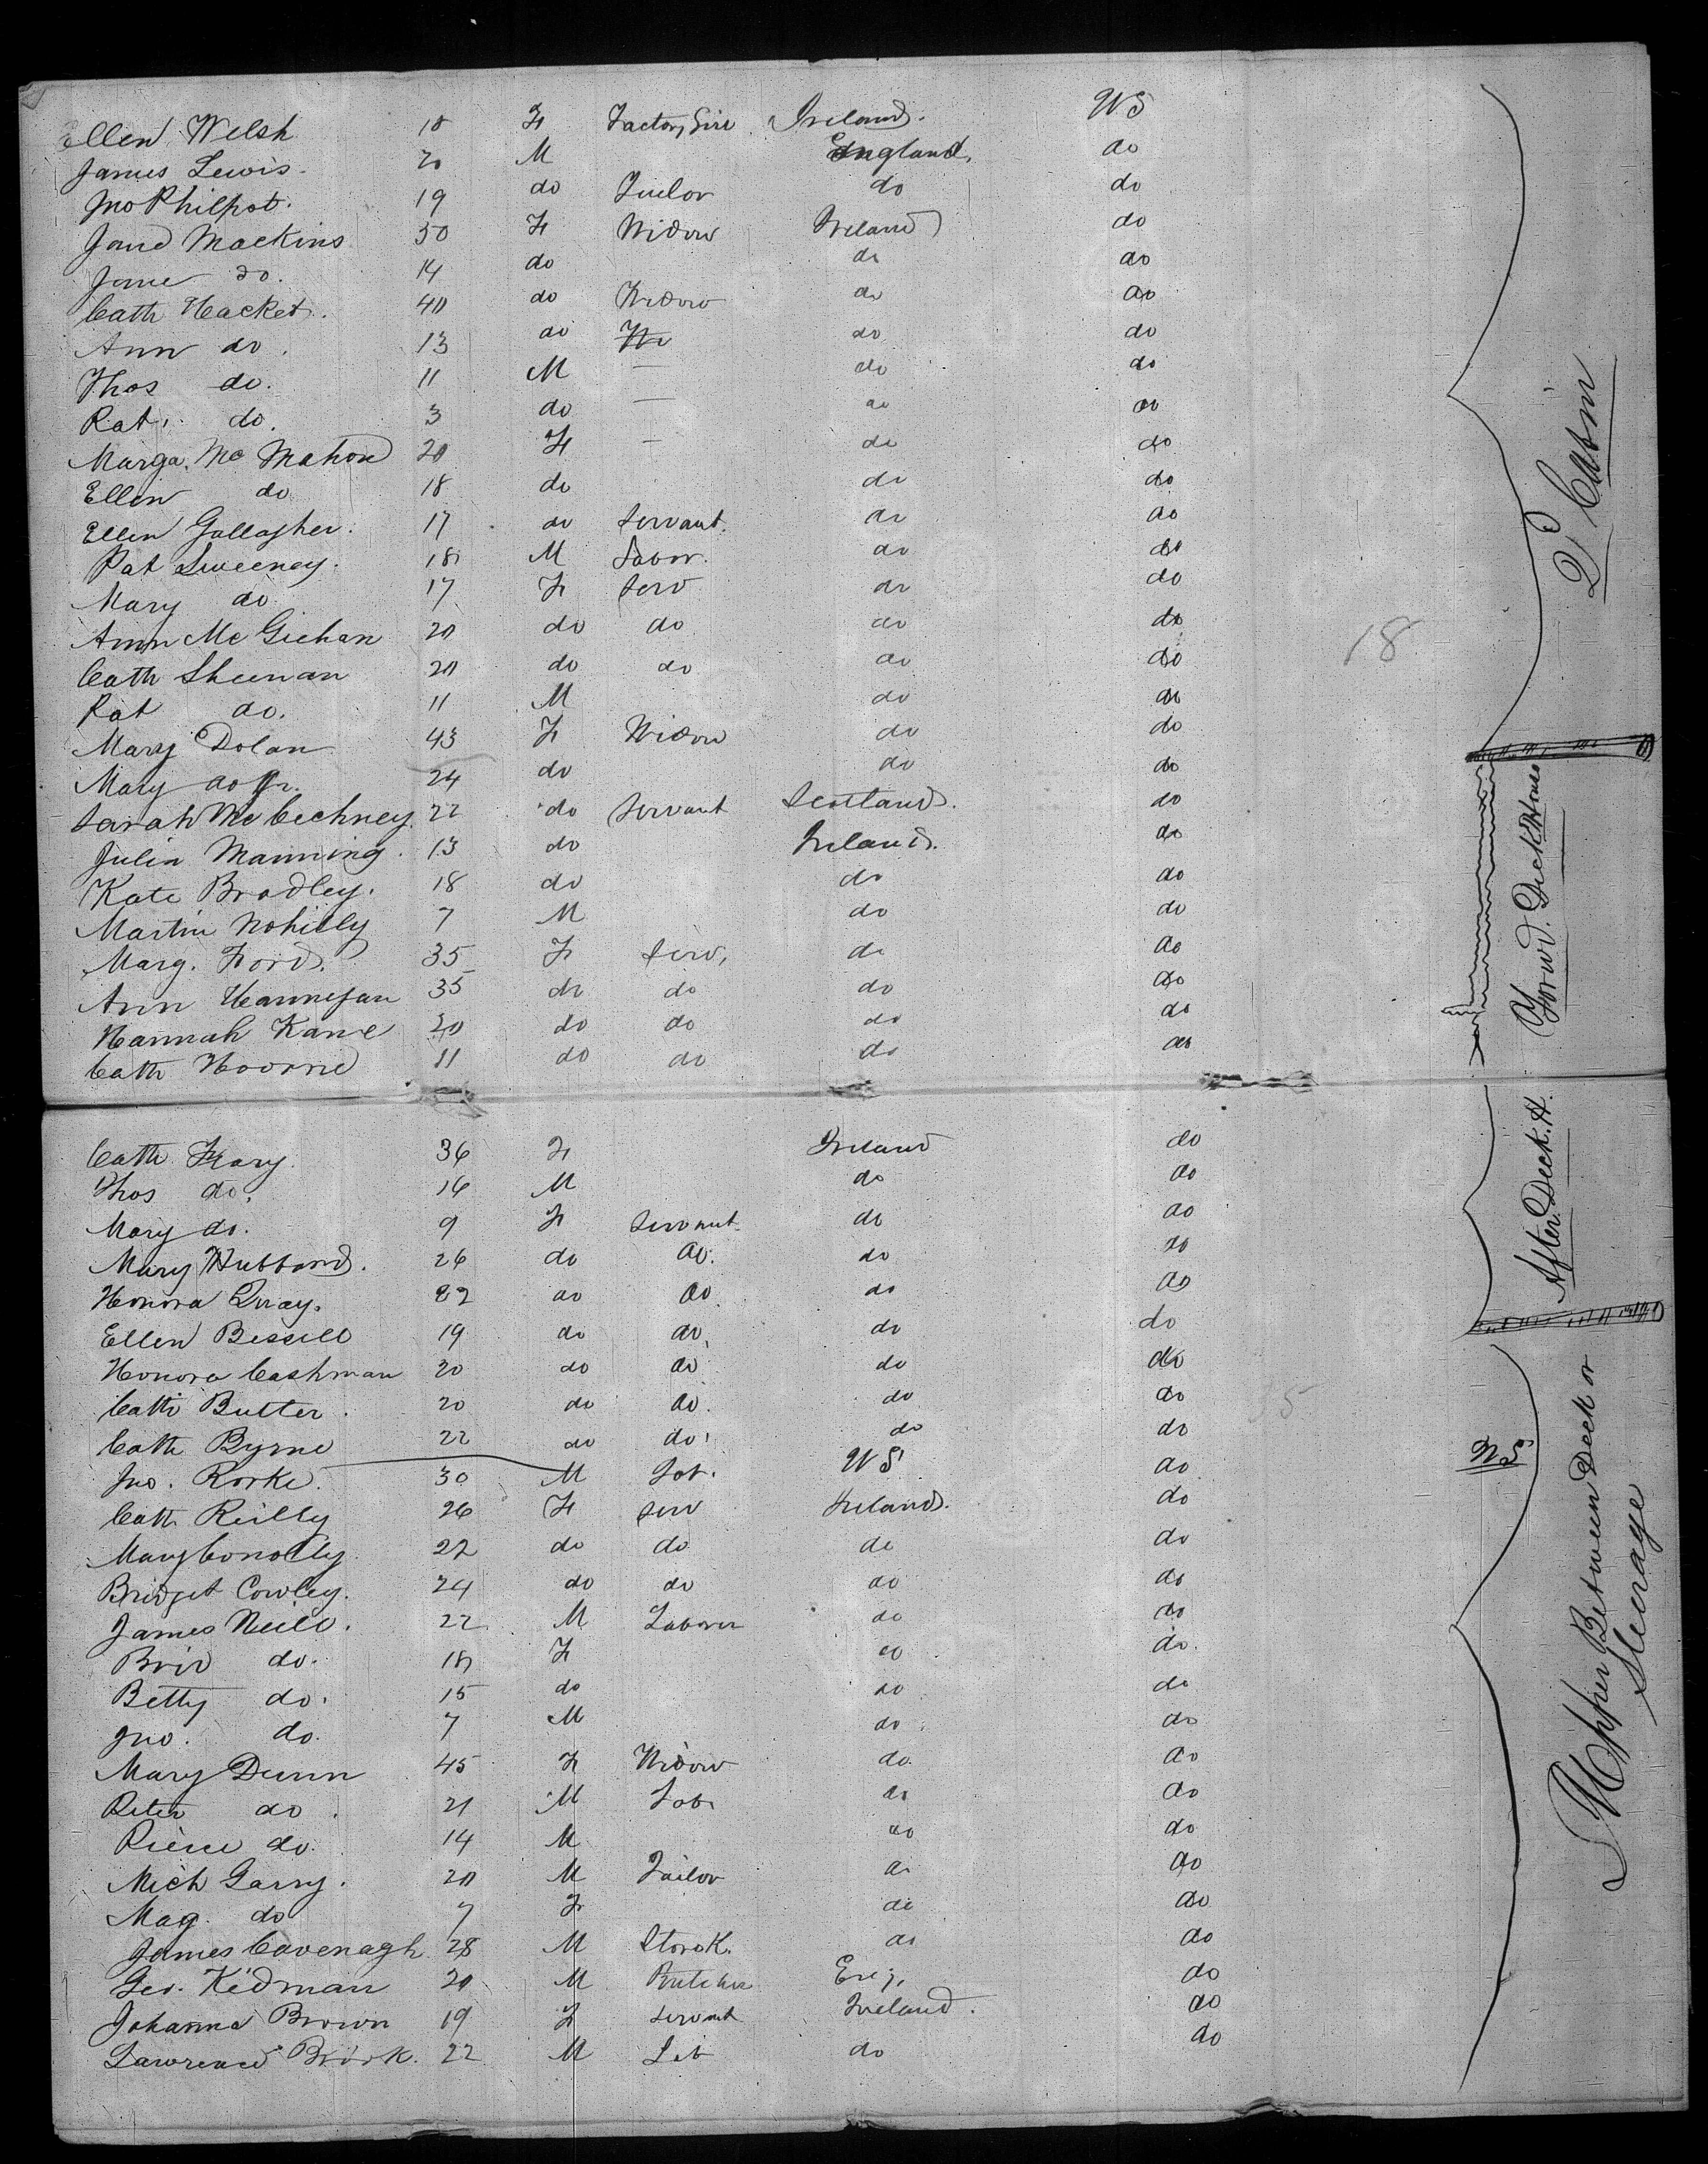 Ellen Welsh 18 F Factory Girl Ireland. US
James Lewis. 20 M England. do
Jno Philpot. 19 do Tailor do do
Jane Mackins 50 F Widow Ireland do
Jane do. 14 do do do
Cath Hacket. 40 do Widow do do
Ann do. 13 do do do
Thos do. 11 M — do do
Pat. do. 3 do — do do
Marga. Mc Mahon 20 F — do do
Ellen do 18 do do do
Ellen Gallagher. 17 do Servant. do do
Pat Sweeney. 18 M Labor. do do
Mary do 17 F Serv do do
Ann Mc Geehan 20 do do do do
Cath Sheenan 20 do do do do
Pat do. 11 M do do
Mary Dolan 43 F Widow do do
Mary do Jr. 24 do do do
Sarah Mc Cechney. 22 do Servant Scotland. do
Julia Manning. 13 do Ireland. do
Kate Bradley. 18 do do do
Martin Nohilly 7 M do do
Marg. Ford. 35 F Serv, do do
Ann Hannefan 35 do do do do
Hannah Kane 20 do do do do
Cath 11 do do do do
Cath 36 F Ireland do
Thos do. 16 M do do
Mary do. 9 F Servant do do
Mary Hubband. 26 do do. do do
Honora Quay. 22 do do do do
Ellen Bessell 19 do do. do do
Honora Cashman 20 do do do do
Cath Butler. 20 do do. do do
Cath Byrne 22 do do. do do
Jno. Rorke. 30 M Lab. US do
Cath Reilly 26 F Serv Ireland. do
Mary Conolly. 22 do do do do
Bridget Cowley. 24 do do do do
James Neill. 22 M Laborer do do
Brid do. 18 F do do.
Betty do. 15 do do do
Jno. do. 7 M do do
Mary Dunn 45 F Widow do do
Peter do. 21 M Lab. do do
Pierce do. 14 M do do
Mich Garry. 20 M Tailor do do
Mag. do 7 F do do
James Cavenagh 28 M StoreK. do do
Geo. Kidman 20 M Butcher Eng. do
Johanna Brown 19 F Servant Ireland. do
Lawrence 22 M Lab do do
2d Cabin
18
Forwd. Deck House
After Deck. H.
US
Upper Between Deck or
Steerage